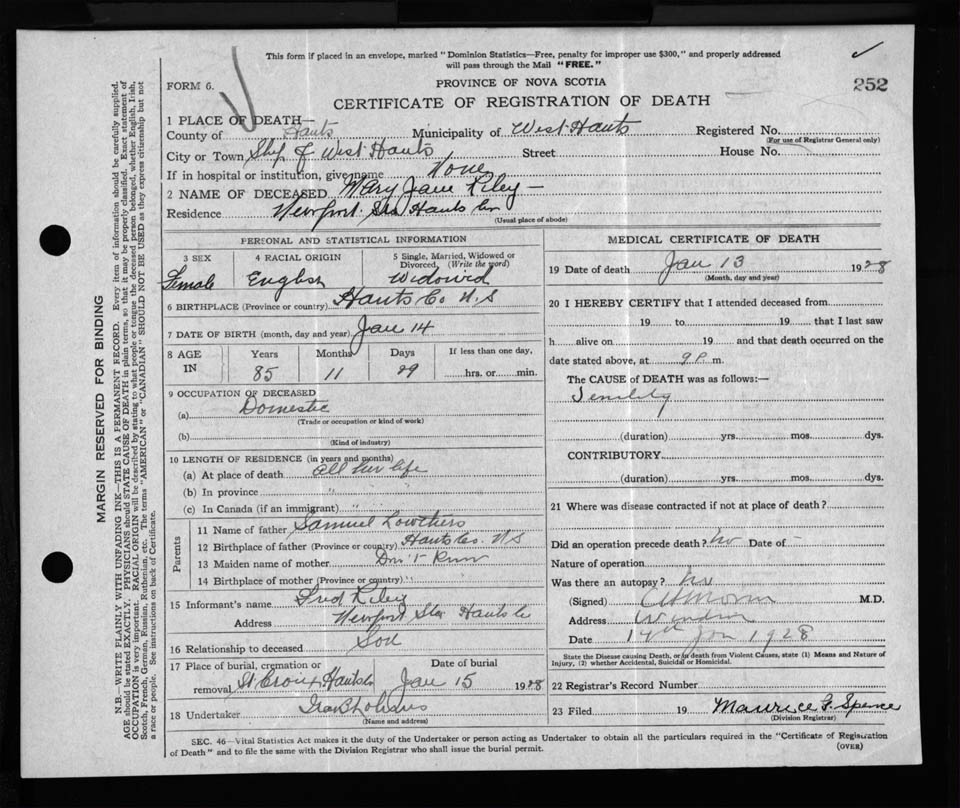 This form if placed in an envelope, marked "Dominion Statistics—Free, penalty for improper use $300," and properly addressed
will pass through the Mail "FREE."
FORM 6.
PROVINCE OF NOVA SCOTIA
252
CERTIFICATE OF REGISTRATION OF DEATH
1 PLACE OF DEATH—
County of Hants Municipality of West Hants Registered No.
(For use of Registrar General only)
City or Town Shp of West Hants Street House No.
If in hospital or institution, give name None
2 NAME OF DECEASED Mary Jane Riley —
Residence Newport Sta Hants Co
(Usual place of abode)
PERSONAL AND STATISTICAL INFORMATION
3 SEX 4 RACIAL ORIGIN 5 Single, Married, Widowed or
Divorced, (Write the word)
Female English Widowed
6 BIRTHPLACE (Province or country) Hants Co N.S
7 DATE OF BIRTH (month, day and year) Jan 14
8 AGE IN Years Months Days If less than one day,
85 11 29 hrs. or min.
9 OCCUPATION OF DECEASED
(a) Domestic
(Trade or occupation or kind of work)
(b)
(Kind of industry)
10 LENGTH OF RESIDENCE (in years and months)
(a) At place of death all her life
(b) In province "
(c) In Canada (if an immigrant) "
Parents
11 Name of father Samuel Lowthers
12 Birthplace of father (Province or country) Hants Co. N S
13 Maiden name of mother Don't Know
14 Birthplace of mother (Province or country) "
15 Informant's name Fred Riley
Address Newport Sta Hants Co
16 Relationship to deceased Son
17 Place of burial, cremation or Date of burial
removal St. Croix Hants Co Jan 15 1928
18 Undertaker
(Name and address)
MEDICAL CERTIFICATE OF DEATH
19 Date of death Jan 13 1928
(Month, day and year)
20 I HEREBY CERTIFY that I attended deceased from
19 to 19 that I last saw
h alive on 19 and that death occurred on the
date stated above, at 9 P. m.
The CAUSE of DEATH was as follows:—
Senility
(duration) yrs. mos. dys.
CONTRIBUTORY
(duration) yrs. mos. dys.
21 Where was disease contracted if not at place of death?
Did an operation precede death? No Date of —
Nature of operation
Was there an autopay? No
(Signed) M.D.
Address Windsor
Date 14th Jan 1928
State the Disease causing Death, or in death from Violent Causes, state (1) Means and Nature of
Injury, (2) whether Accidental, Suicidal or Homicidal.
22 Registrar's Record Number
23 Filed 19 Maurice F. Spence
(Division Registrar)
SEC. 46—Vital Statistics Act makes it the duty of the Undertaker or person acting as Undertaker to obtain all the particulars required in the "Certificate of Registration
of Death" and to file the same with the Division Registrar who shall issue the burial permit.
(OVER)
MARGIN RESERVED FOR BINDING
N.B.—WRITE PLAINLY WITH UNFADING INK—THIS IS A PERMANENT RECORD. Every item of information should be carefully supplied.
AGE should be stated EXACTLY. PHYSICIANS should STATE CAUSE OF DEATH in plain terms, so that it may be properly classified. Exact statement of
OCCUPATION is very important. RACIAL ORIGIN will be described by stating to what people or tongue the deceased person belonged, whether English, Irish,
Scotch, French, German, Russian, Ruthenian, etc. The terms "AMERICAN" or "CANADIAN" SHOULD NOT BE USED as they express citizenship but not
a race or people. See instructions on back of Certificate.